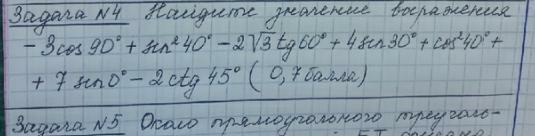 Задача №4 Найдите значение выражения
- 3cos 90° + sin² 40° - 2√3 tg 60° + 4 sin 30° + cos² 40° +
+ 7 sin 0° - 2 ctg 45° ( 0,7 балла )
Задача №5 Около прямоугольного треуголь-